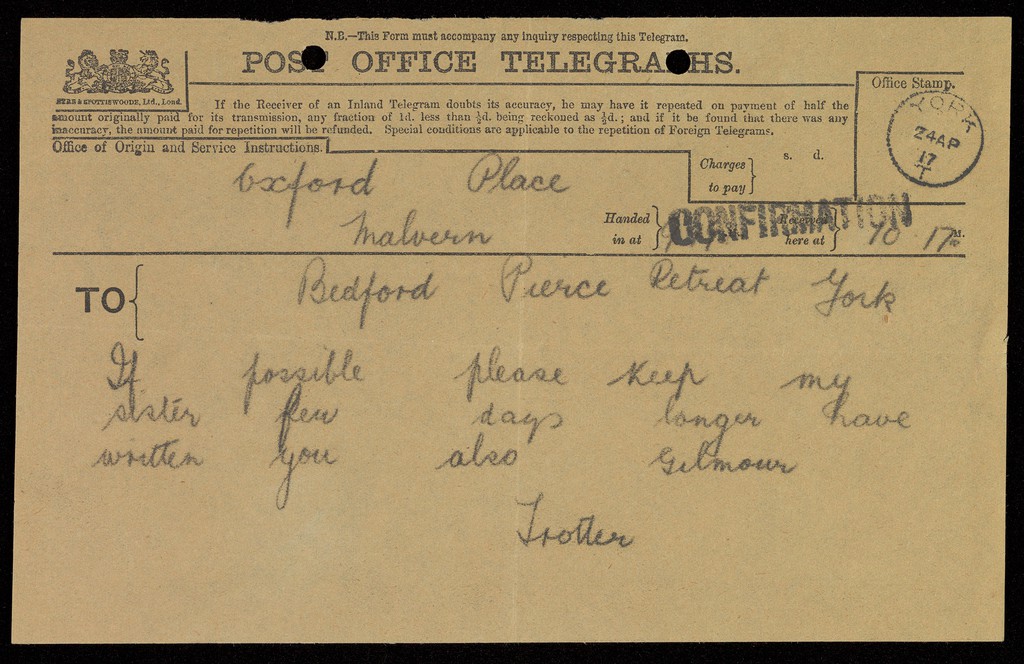 N.B.—This Form must accompany any inquiry respecting this Telegram.
POST OFFICE TELEGRAPHS.
EYRE & SPOTTISWOODE, Ltd., Lond.
If the Receiver of an Inland Telegram doubts its accuracy, he may have it repeated on payment of half the
amount originally paid for its transmission, any fraction of 1d. less than ½d. being reckoned as ½d.; and if it be found that there was any
inaccuracy, the amount paid for repetition will be refunded. Special conditions are applicable to the repetition of Foreign Telegrams.
Office Stamp.
YORK
24AP
17
T
Office of Origin and Service Instructions.
Charges
to pay
s. d.
Oxford Place
Malvern
Handed
in at
CONFIRMATION
Received
here at
10 17 M.
TO
Bedford Pierce Retreat York
If possible please keep my
sister few days longer have
written you also Gilmour
Trotter